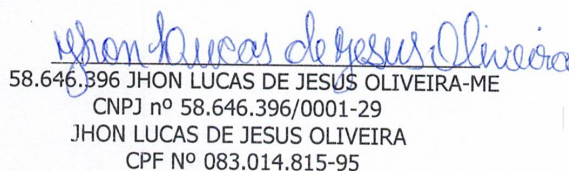 Jhon Lucas de Jesus Oliveira
58.646.396 JHON LUCAS DE JESUS OLIVEIRA-ME
CNPJ nº 58.646.396/0001-29
JHON LUCAS DE JESUS OLIVEIRA
CPF Nº 083.014.815-95